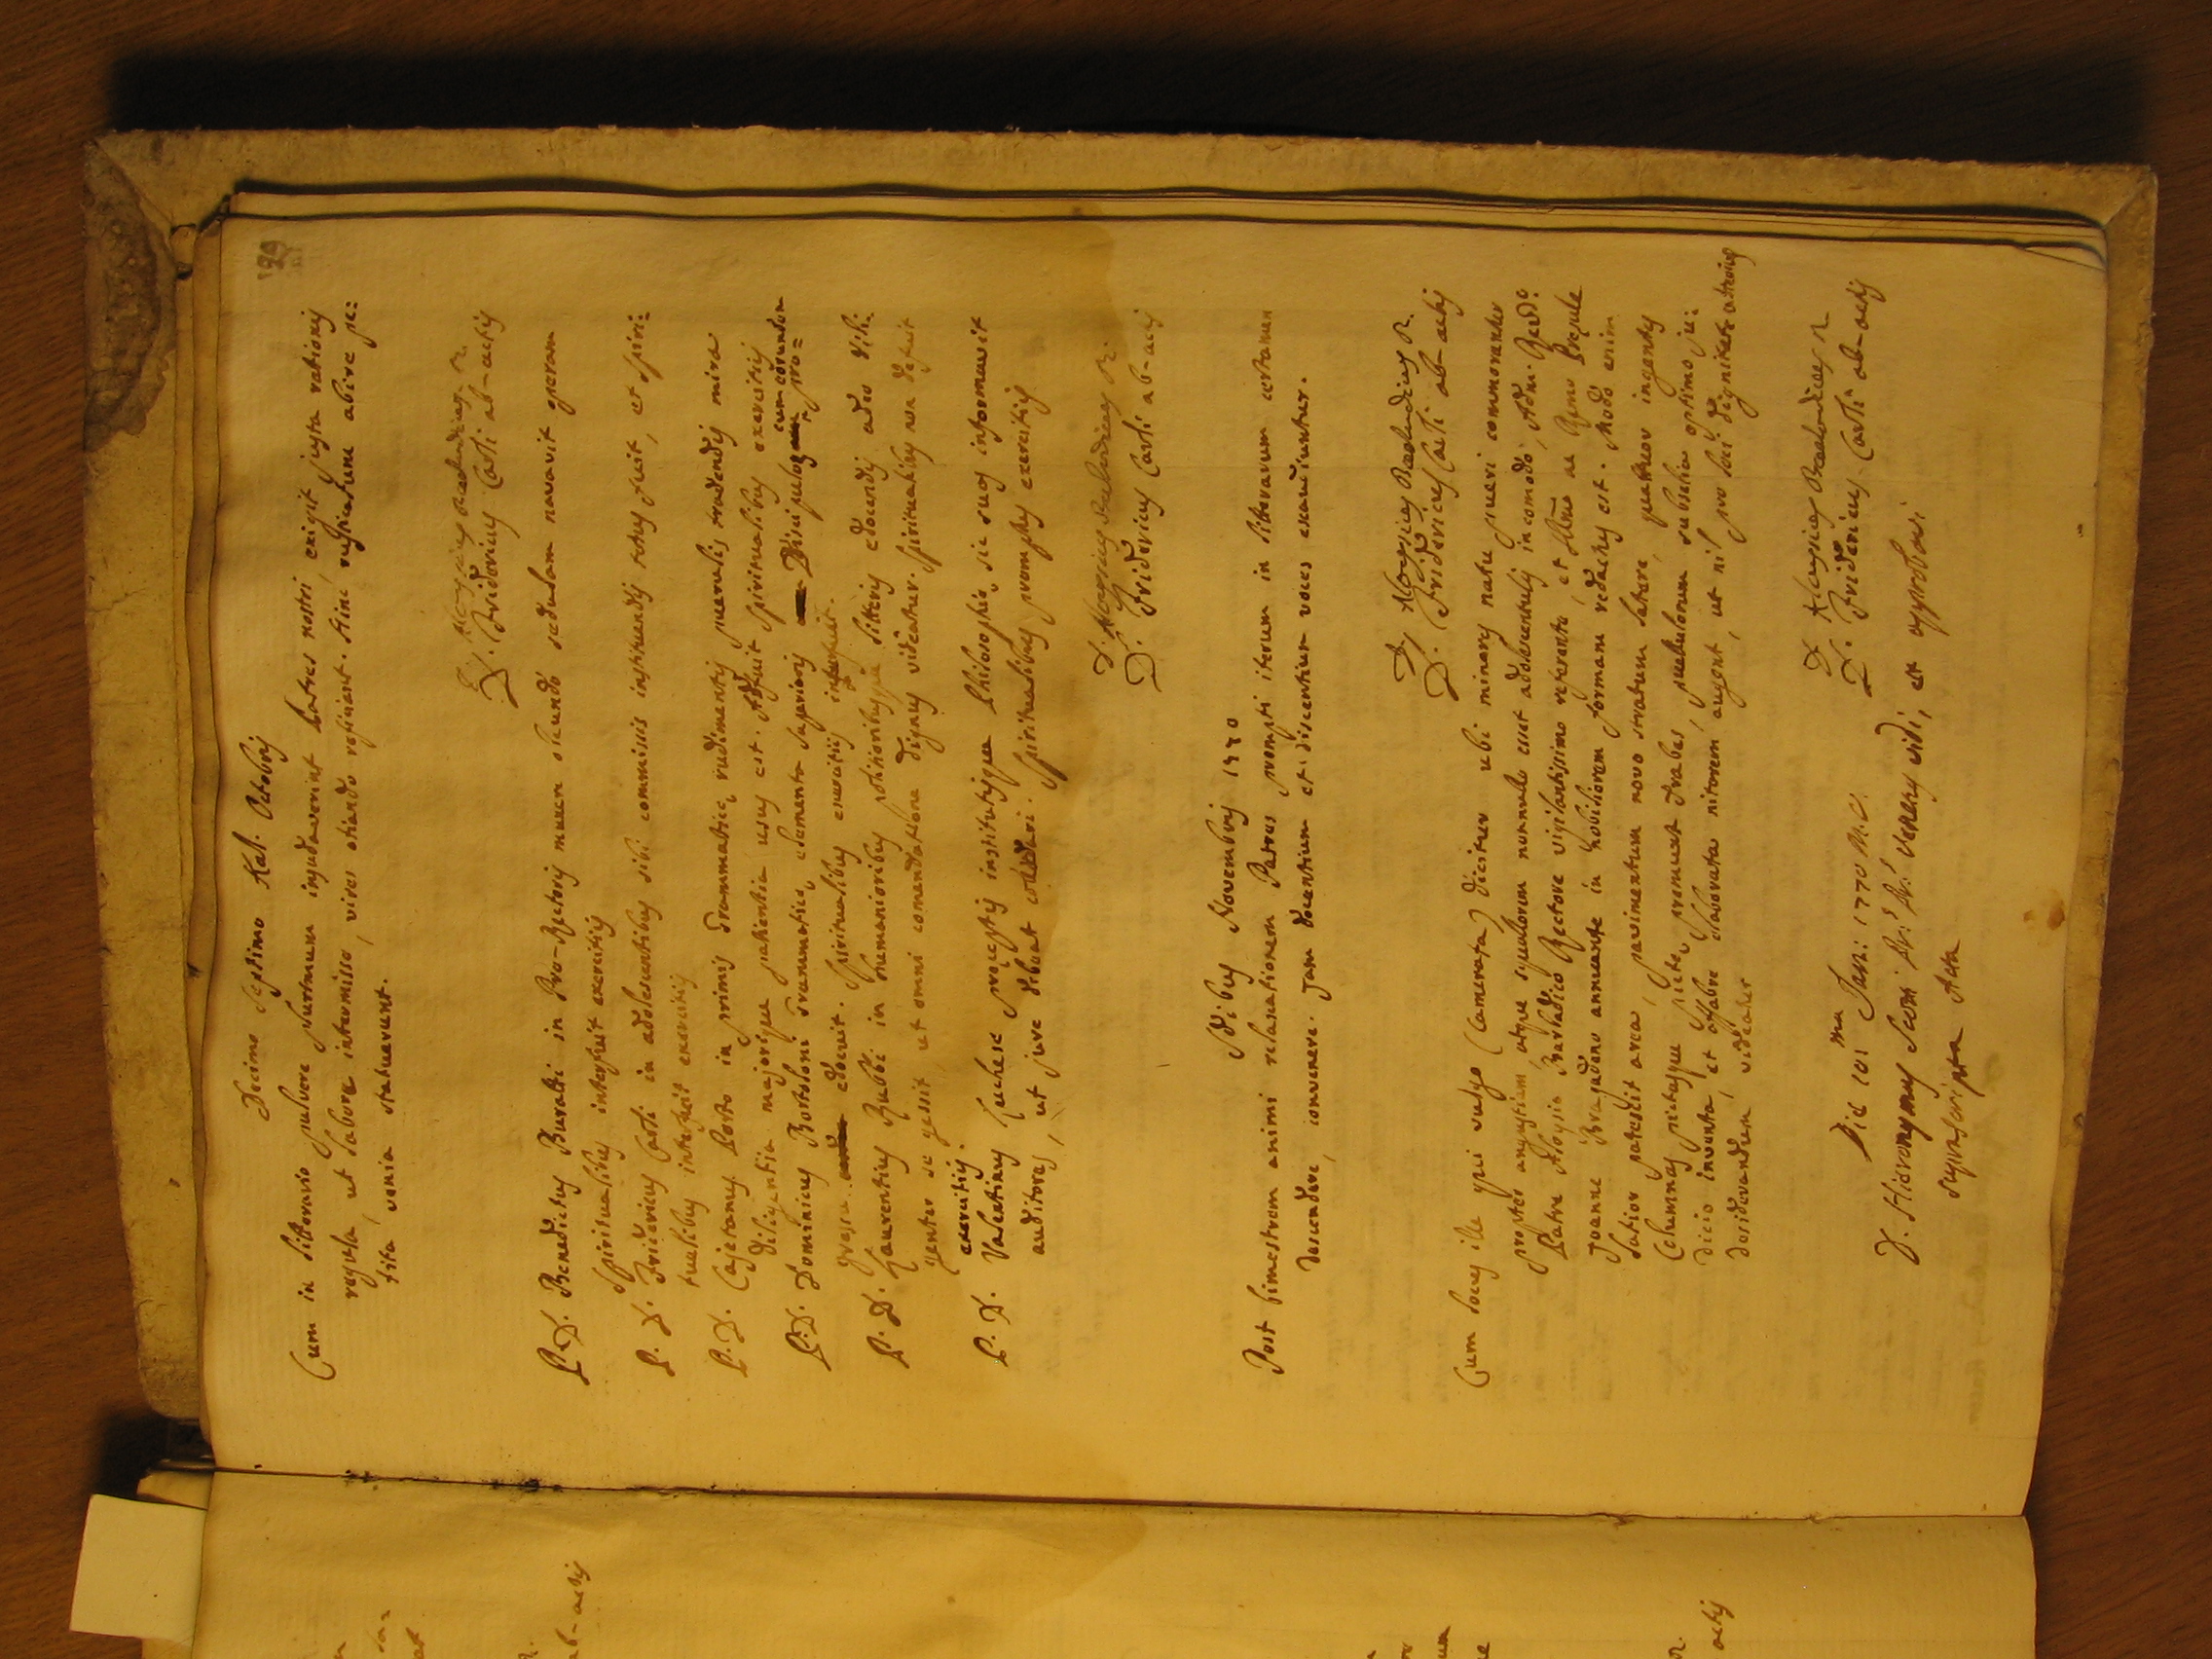 129
Decimo septimo Kal. Octobris
Cum in litterario pulvere plurimum insudaverint Patres nostri, exigit justa rationis
regula, ut labore intermisso, vires otiando reficiant. Hinc rusticatum abire pe:
tita venia statuerunt.
D. Aloysius Barbadicus R.
D. Fridericus Carli ab actis
P. D. Benedictus Buratti in Pro-Rectoris munere obeundo sedulam navavit operam
spiritualibus interfuit exercitiis
P. D. Fridericus Carli in adolescentibus sibi commissis instituendis totus fuit, et spiri:
tualibus interfuit exercitiis
P. D. Cajetanus Porto in primis Grammaticę rudimentis pueris tradendis mira
diligentia majorique patientia usus est. Adfuit spiritualibus exercitiis
P. D. Dominicus Bortoloni Grammaticę elementa superioris Discipulos cum eorundem pro=
gressu edocuit. Spiritualibus exercitiis interfuit.
P. D. Laurentius Rubbi in humanioribus politioribusque litteris edocendis adeo dili:
genter se gessit, ut omni comendatione dignus videatur. Spiritualibus non defuit
exercitiis.
P. D. Valentinus Luchese provectis institutisque Philosophię sic suos informavit
auditores, ut jure debeat collaudari. Spiritualibus promptus exercitiis
D. Aloysius Barbadicus R.
D. Fridericus Carli ab actis
Idibus Novembris 1770
Post bimestrem animi relaxationem Patres prompti iterum in litterarum certamen
descendere, convenere. Jam docentium et discentium voces exaudiuntur.
D. Aloysius Barbadicus R.
D. Fridericus Carli ab actis
Cum locus ille qui vulgo (Camerata) dicitur ubi minores natu pueri commorantur
propter angustiam atque nonnulo esset adolescentulis incomodo, Adm. Revdo
Patre Aloysio Barbadico Rectore vigilantissimo referente, et Illmo ac Rmo Prępule
Joanne Bragadeno annuente in nobiliorem formam redactus est. Modo enim
latior patescit area, pavimentum novo stratum latere, quatuor ingentes
Columnas pictasque pictę premunt trabes, puerulorum subselia optimo ju:
dicio inventa, et affabre elaborata nitorem augent, ut nil pro loci dignitate
desiderandum videatur
D. Aloysius Barbadicus R.
D. Fridericus Carli ab actis
Die 10ma Jani: 1770 M.V.
D. Hieronymus vidi, et approbavi
suprascripta Acta